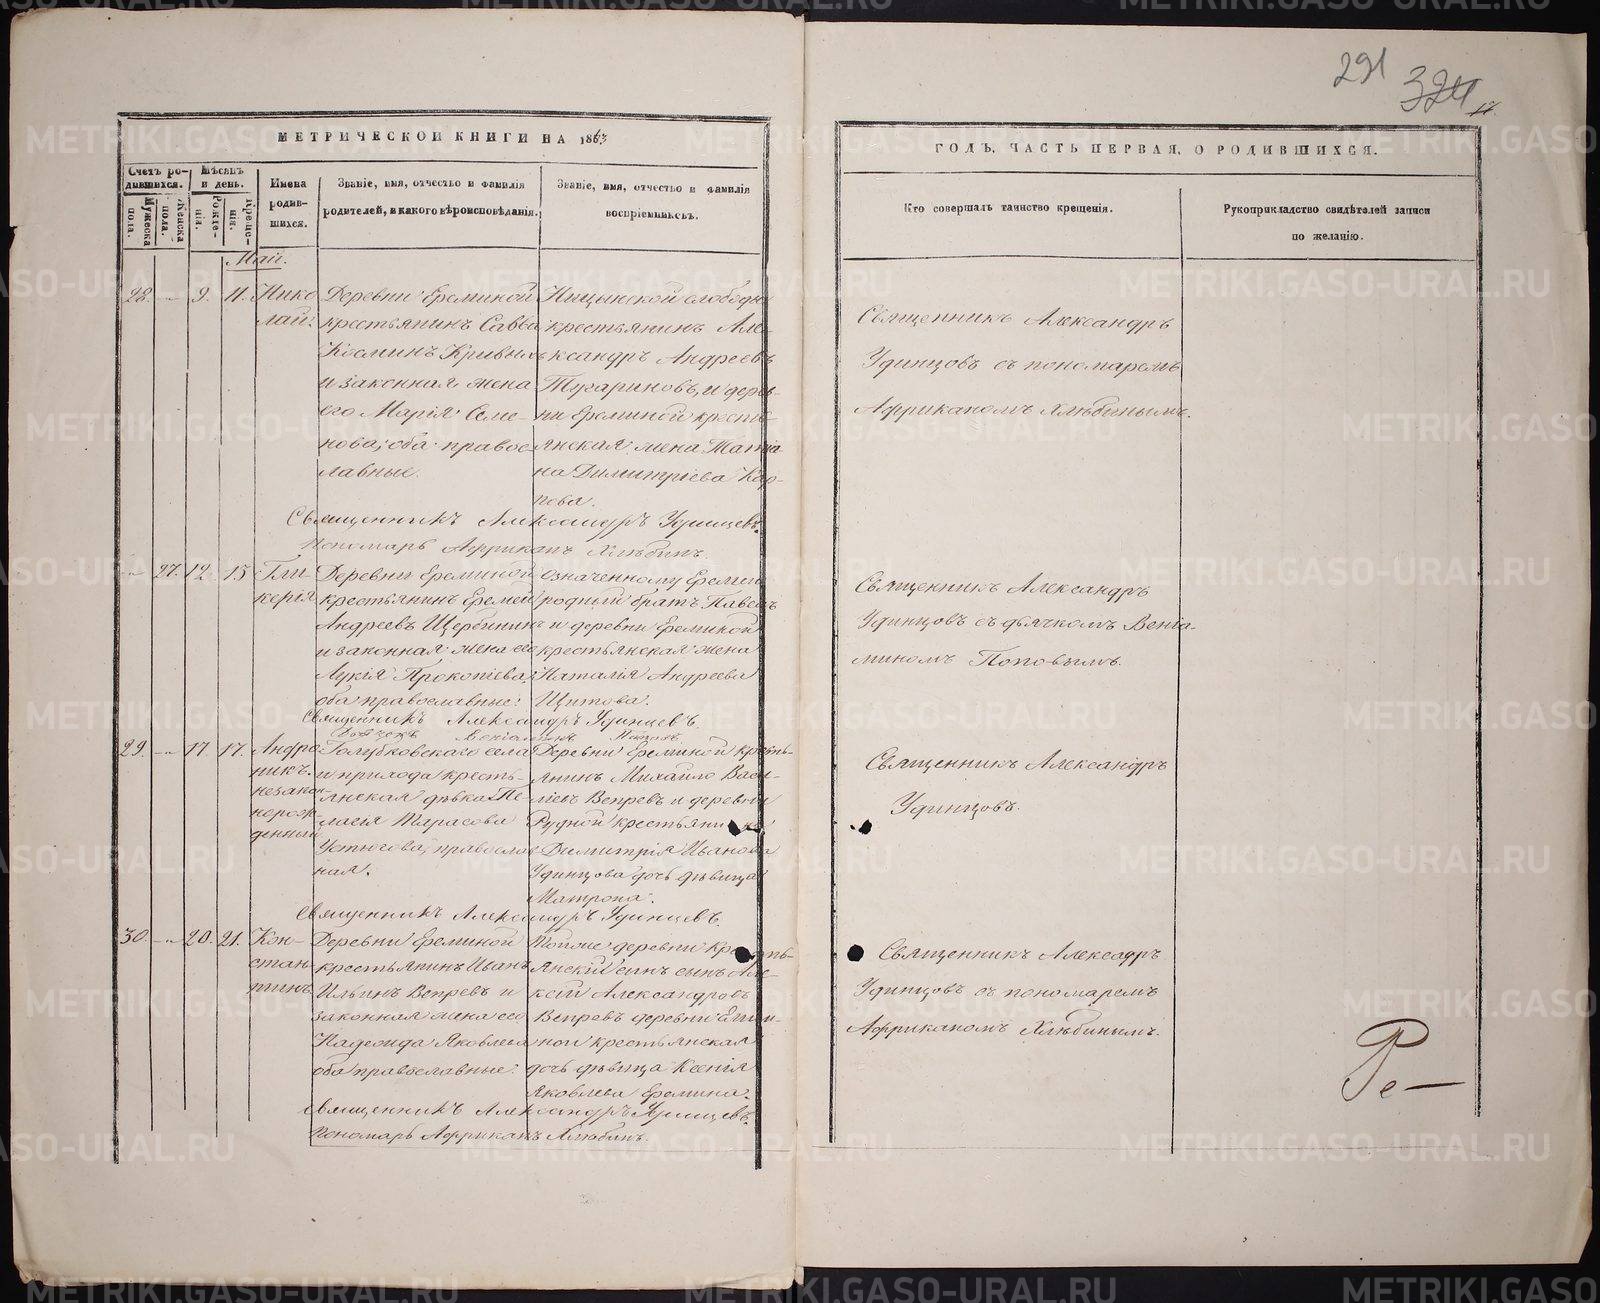 291
324
МЕТРИЧЕСКОЙ КНИГИ НА 1863
ГОДЪ, ЧАСТЬ ПЕРВАЯ, О РОДИВШИХСЯ.
Счетъ ро-
дившихся.
Мужеска
пола.
Женска
пола.
Мѣсяцъ
и день.
Рожде-
нія.
Креще-
нія.
Имена
родив-
шихся.
Званіе, имя, отчество и фамилія
родителей, и какого вѣроисповѣданія.
Званіе, имя, отчество и фамилія
воспріемниковъ.
Кто совершалъ таинство крещенія.
Рукоприкладство свидѣтелей записи
по желанію.
Май.
28. - 9. 11.
Нико
лай.
Деревни Ереминой
крестьянинъ Савва
Косминъ Кривыхъ
и законная жена
его Марія Семе-
нова; оба правос-
лавные.
Ницынской слободы
крестьянинъ Але-
ксандръ Андреевъ
Тугариновъ, и дерев-
ни Ереминой кресть-
янская жена Татіа
на Димитріева Кар-
пова.
Священникъ Александръ
Удинцовъ съ пономаремъ
Африканомъ Хлѣбинымъ.
Священникъ Александръ Удинцевъ
Пономарь Африканъ Хлѣбинъ.
- 27. 12. 15
Гли-
керія
Деревни Ереминой
крестьянинъ Еремей
Андреевъ Щербининъ
и законная жена его
Лукія Прокопіева;
оба православные.
Означенному Еремею
родный братъ Павелъ
и деревни Ереминой
крестьянская жена
Наталія Андреева
Щитова.
Священникъ Александръ
Удинцовъ съ дьячкомъ Веніа-
миномъ Поповымъ.
Священникъ Александръ Удинцевъ
Веніаминъ Поповъ
29. - 17. 17.
Андро
никъ.
незакон-
норож-
денный
Голубковскаго села
и прихода кресть-
янская дѣвка Пе-
лагія Тарасова
Устюгова, православ
ная.
Деревни Ереминой кресть-
янинъ Михайло Васи-
ліевъ Вепревъ и деревни
Рудной крестьянина
Димитрія Иванова
Удинцова дочь дѣвица
Матрона.
Священникъ Александръ
Удинцовъ.
Священникъ Александръ Удинцевъ.
30. - 20. 21.
Кон-
стан-
тинъ
Деревни Ереминой
крестьянинъ Иванъ
Ильинъ Вепревъ и
законная жена его
Надежда Яковлева
оба православные.
Тойже деревни кресть-
янскій сынъ Але-
ксѣй Александровъ
Вепревъ деревни Ереми-
ной крестьянская
дочь дѣвица Ксенія
Яковлева Еремина.
Священникъ Алексадръ
Удинцовъ съ пономаремъ
Африканомъ Хлѣбинымъ.
Священникъ Александръ Удинцевъ.
Пономарь Африканъ Хлѣбинъ.
Ре—
METRIKI.GASO-URAL.RU